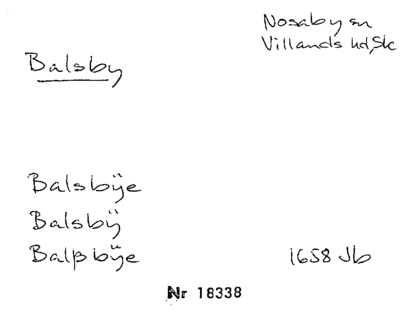 Nosaby sn
Villands hd, Sk
Balsby
Balsbÿe
Balsbÿ
Balßbÿe
1658 Jb
Nr 18338